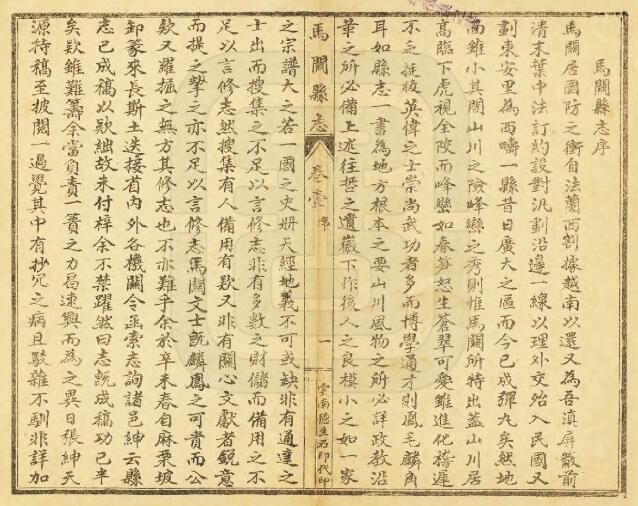 馬關縣志序
馬關居國防之衝自法蘭西割據越南以還又為吾滇屏蔽前
清末葉中法訂約設對汛劃沿邊一線以理外交殆入民國又
劃東安里為西疇一縣昔日廣大之區而今已成彈丸矣然地
面雖小其間山川之險峰巒之秀則惟馬關所特出蓋山川居
高臨下虎視全陂而峰巒如春筍怒生蒼翠可愛雖進化稽遲
不乏挺拔英偉之士崇尚武功者多而博學通才則鳳毛麟角
耳如縣志一書為地方根本之要山川風物之所必詳政教沿
革之所必備上述往哲之遺徽下作後人之良模小之如一家
馬關縣志
卷壹 序
一
雲南德生石印代印
之宗譜大之若一國之史冊天經地義不可或缺非有通達之
士出而搜集之不足以言修志非有多數之財儲而備用之不
足以言修志然搜集有人備用有欵又非有關心文獻者銳意
而提之挈之亦不足以言修志馬關文士既麟鳳之可貴而公
欵又羅掘之無方其修志也不亦難乎余於辛未春自麻栗坡
卸篆來長斯土迭接省內外各機關令函索志詢諸邑紳云縣
志已成稿以欵絀故未付梓余不禁躍然曰志既成稿功已半
矣欵雖難籌余當負責一簣之力曷速興而為之異日張紳天
源持稿至披閱一過覺其中有抄冗之病且駁雜不馴非詳加